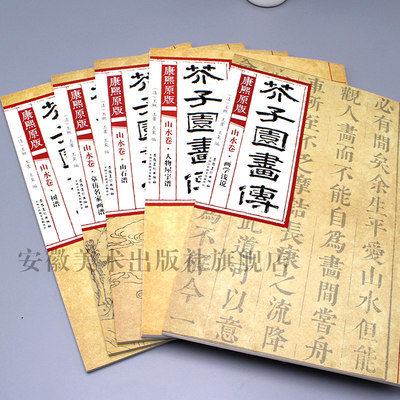 康熙原版
芥子園畫傳
山水卷·画学浅说
必有間矣余生平愛山水但能
觀人畫而不能自為畫間嘗舟
車所至不乏摩詰長康之流降
道可以意
今一
康熙原版
芥子園畫傳
山水卷·人物屋宇谱
康熙原版
芥子園
山水卷·山石谱
康熙原版
芥子
山水卷·摹仿名家画谱
康熙原版
芥
山水卷·树谱
安徽美术出版社旗舰店